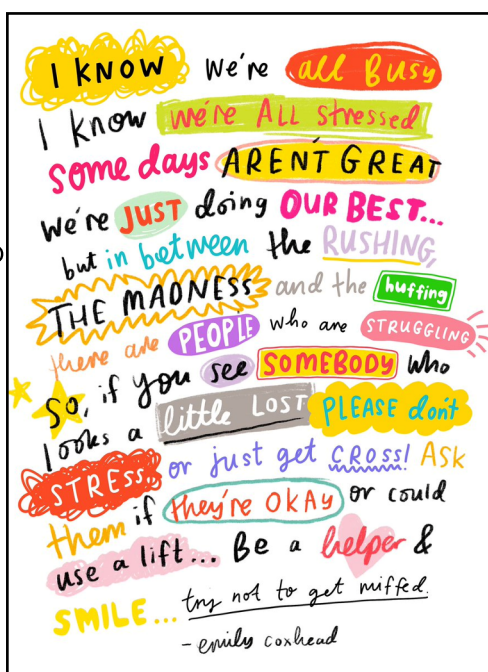 I KNOW we're all Busy
I know we're ALL stressed
some days AREN'T GREAT
we're JUST doing OUR BEST...
but in between the RUSHING,
THE MADNESS and the huffing
there are PEOPLE who are STRUGGLING
So, if you see SOMEBODY who
looks a little LOST PLEASE don't
STRESS or just get CROSS! Ask
them if they're OKAY or could
use a lift... Be a helper &
SMILE... try not to get miffed.
- emily coxhead